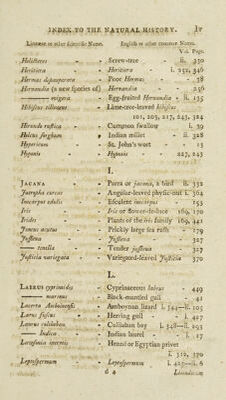 INDEX TO THE NATURAL HISTORY. lv
Linnæan or other Scientific Name. English or other common Name.
Vol. Page.
Helicteres - Screw-tree - ii. 330
Heritiera - Heritiera - i. 252, 346
Hermas depauperata - Poor Hermas - 78
Hernandia (a new species of) Hernandia - 256
—— ovigera - Egg-fruited Hernandia - ii. 135
Hibiscus tiliaceus - Lime-tree-leaved hibiscus
101, 203, 217, 243, 324
Hirundo rustica - Common swallow i. 39
Holcus sorghum - Indian millet - ii. 328
Hypericum - St. John's wort - 13
Hypoxis - Hypoxis - 227, 243
I.
JACANA - Parra or jacana, a bird ii. 332
Jatropha curcas - Angular-leaved physic-nut i. 364
Inocarpus edulis - Esculent inocarpus - 155
Iris - Iris or flower-de-luce 169, 170
Irides - Plants of the iris family 169, 241
Juncus acutus - Prickly large sea rush - 179
Jussieua - Jussieua - 327
—— tenella - Tender jussieua - 327
Justicia variegata - Variegated-leaved Justicia 370
L.
LABRUS cyprinoides - Cyprinaceous labrus - 449
Lacerta Amboinensis Amboynan lizard i. 344—ii. 105
Larus fuscus - Herring gull - i. 427
Laurus culilaban - Culilaban bay i. 348—ii. 293
—— Indica - Indian laurel - i. 17
Lawsonia inermis - Henné or Egyptian privet
i. 312, 370
Leptospermum - Leptospermum - i. 425—ii. 6
d 4